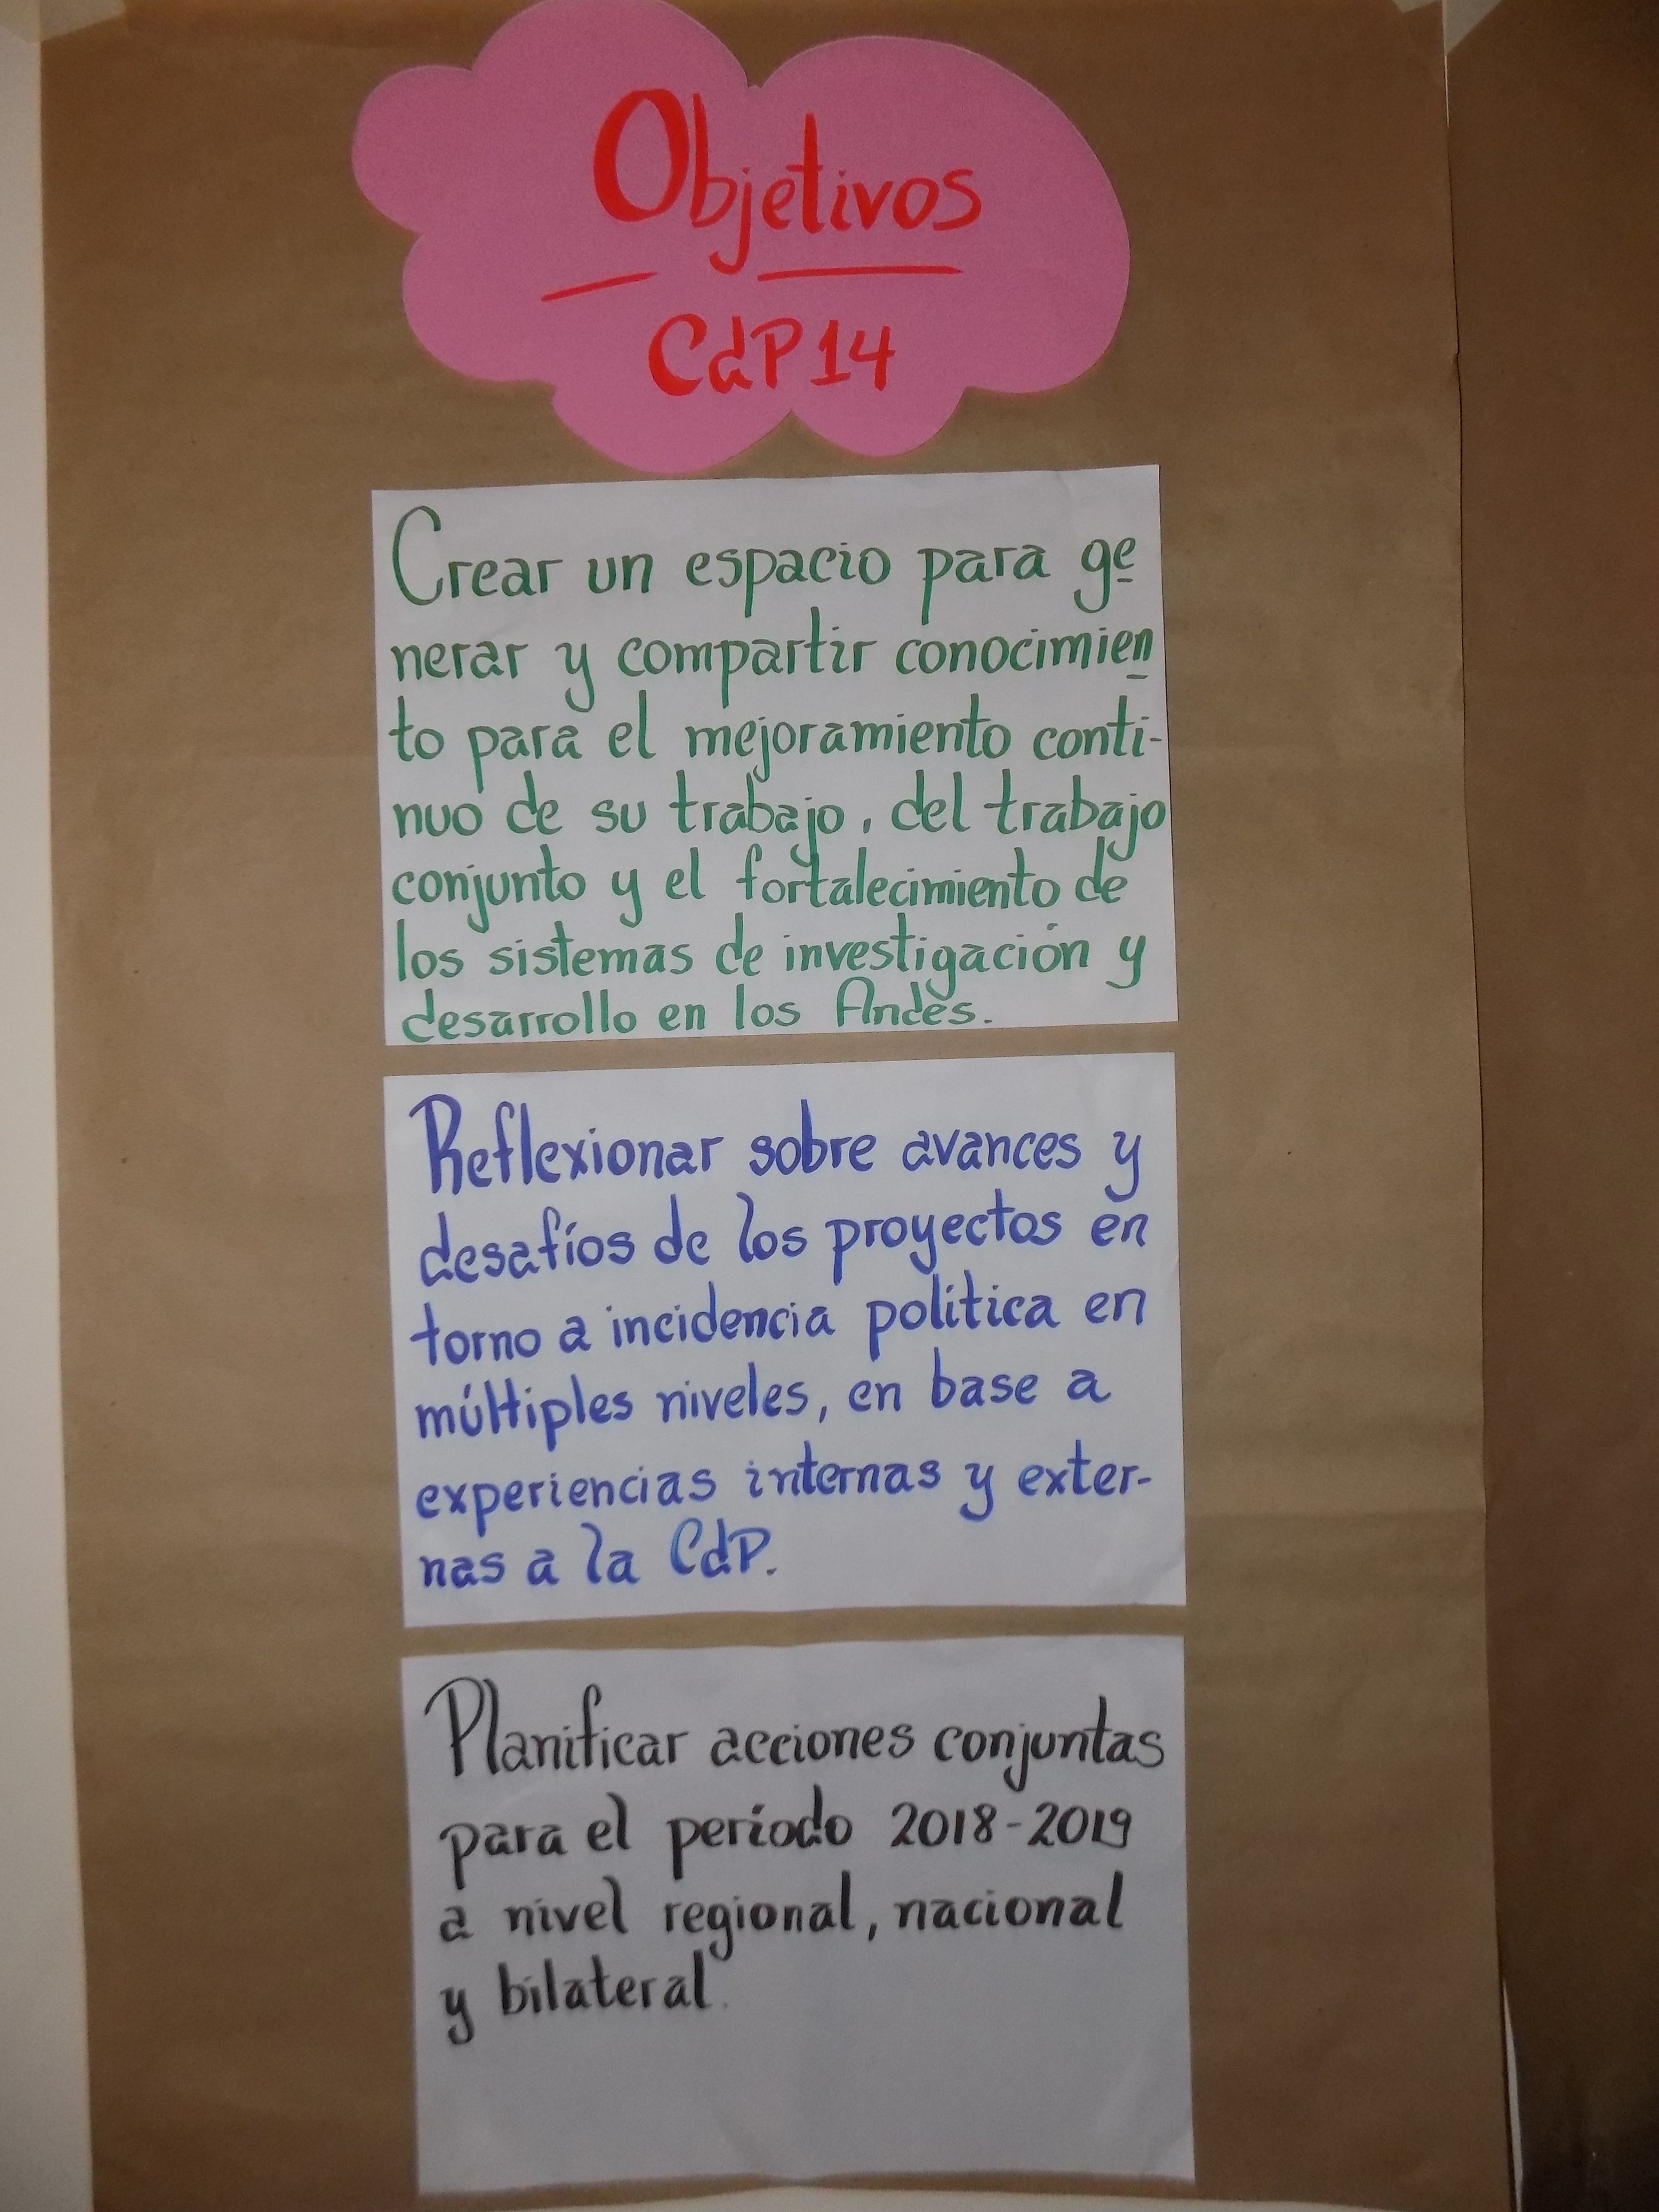 Objetivos
CdP14
Crear un espacio para ge
nerar y compartir conocimien
to para el mejoramiento conti-
nuo de su trabajo, del trabajo
conjunto y el fortalecimiento de
los sistemas de investigación y
desarrollo en los Andes.
Reflexionar sobre avances y
desafíos de los proyectos en
torno a incidencia política en
múltiples niveles, en base a
experiencias internas y exter-
nas a la CdP.
Planificar acciones conjuntas
para el período 2018-2019
a nivel regional, nacional
y bilateral.